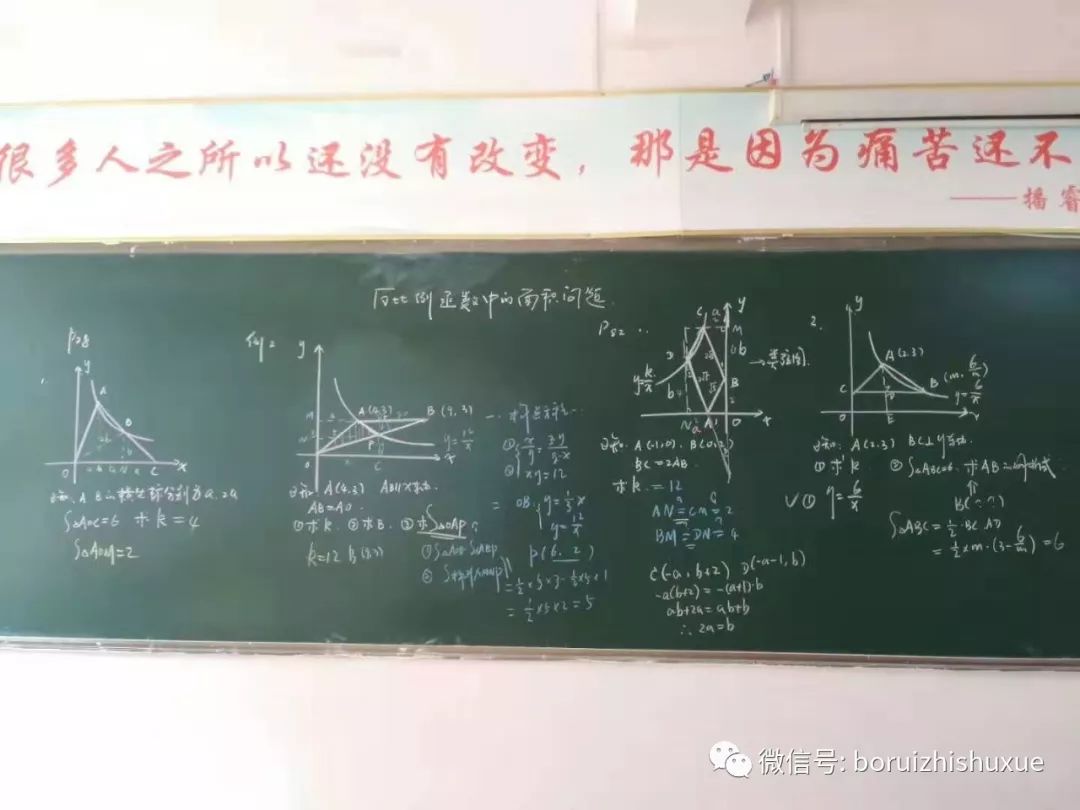 很多人之所以还没有改变，那是因为痛苦还不
——播睿
反比例函数中的面积问题
P28
y
A
B
O
C
x
已知: A B的横坐标分别为a, 2a
S△AOC=6 求k=4
S△AOM=2
例2
y
A(4,3)
B(9,3)
y=12/x
P
O
C
x
已知: A(4,3) AB//x轴
AB=AO
①求k ②求B ③求S△OAP
k=12 B(9,3)
① x/y =
② xy=12
OB: y=1/3x
y=12/x
P(6, 2)
=1/2×5×2=5
P82
C
a
y
M
D
b
B
y=k/x
N
A
x
已知: A(-1,0) B(0,2)
BC=2AB
求k=12
AN=CM=2
BM=DN=4
C(-a, b+2) D(-a-1, b)
-a(b+2)=-(a+1)·b
ab+2a=ab+b
∴ 2a=b
2.
y
A(2,3)
C
D
B(m, 6/m)
y=6/x
O
E
x
已知: A(2,3) BC⊥y轴
①求k ②S△ABC=6 求AB的解析式
√① y=6/x
S△ABC=1/2·BC·AD
=1/2×m·(3-6/m)=6
微信号: boruizhishuxue